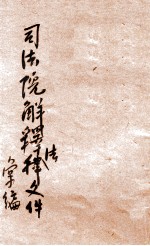 司法院解釋法律文件
彙編